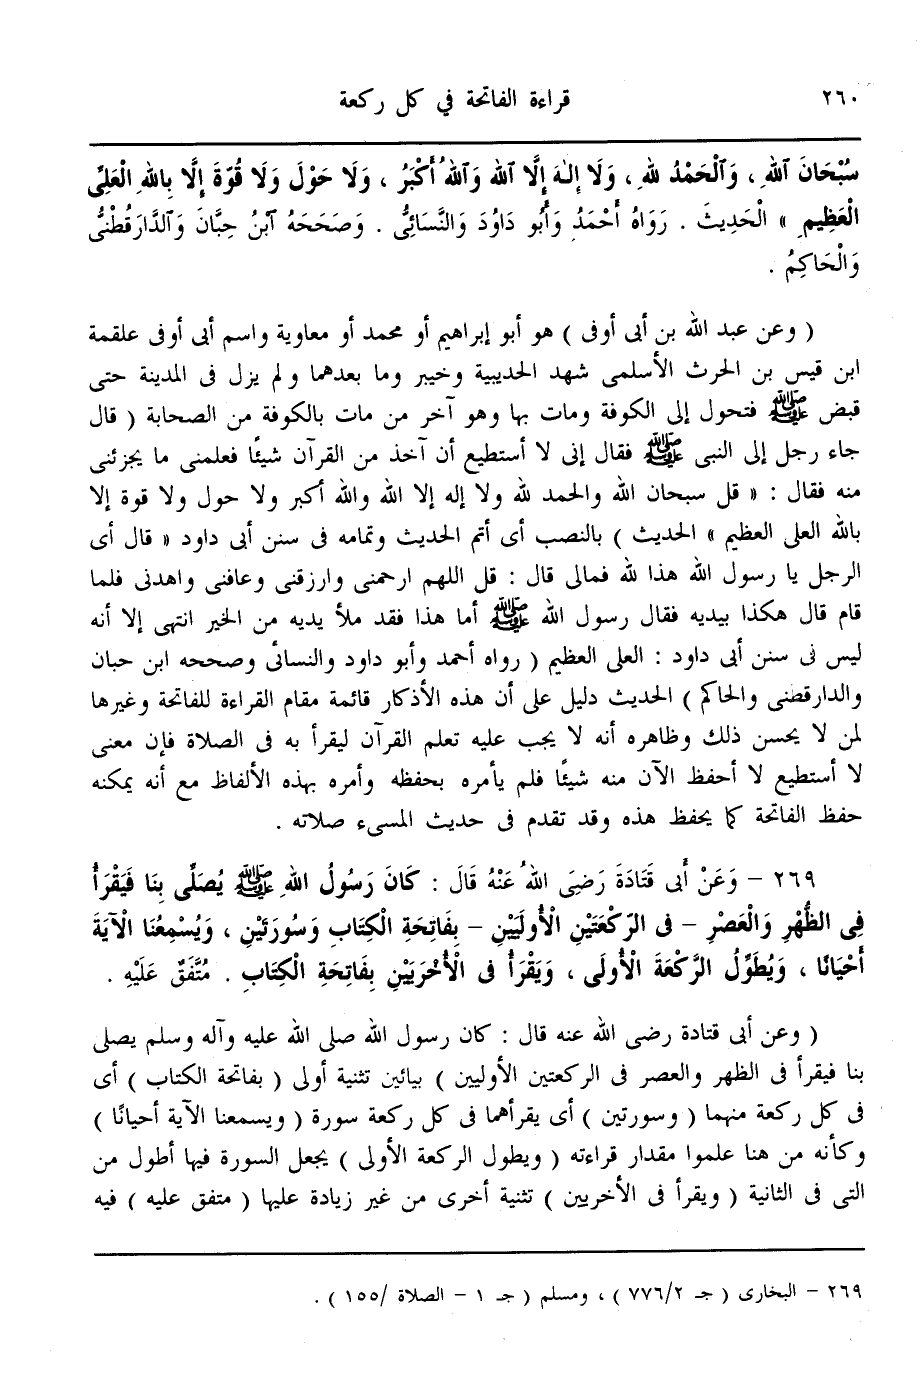 ٢٦٠ قراءة الفاتحة في كل ركعة
سُبْحَانَ ٱللهِ ، وَٱلْحَمْدُ للهِ ، وَلَا إِلٰهَ إِلَّا ٱللهُ وَٱللهُ أَكْبَرُ ، وَلَا حَوْلَ وَلَا قُوَّةَ إِلَّا بِاللهِ الْعَلِىِّ
الْعَظِيمِ » الْحَدِيثَ . رَوَاهُ أَحْمَدُ وَأَبُو دَاوُدَ وَالنَّسَائِىُّ . وَصَحَحَهُ ٱبْنُ حِبَّانَ وَٱلدَّارَقُطْنِىُّ
وَالْحَاكِمُ .
( وعن عبد الله بن أبى أوفى ) هو أبو إبراهيم أو محمد أو معاوية واسم أبى أوفى علقمة
ابن قيس بن الحرث الأسلمى شهد الحديبية وخيبر وما بعدهما ولم يزل فى المدينة حتى
قبض ﷺ فتحول إلى الكوفة ومات بها وهو آخر من مات بالكوفة من الصحابة ( قال
جاء رجل إلى النبى ﷺ فقال إنى لا أستطيع أن آخذ من القرآن شيئًا فعلمنى ما يجزئنى
منه فقال : « قل سبحان الله والحمد لله ولا إله إلا الله والله أكبر ولا حول ولا قوة إلا
بالله العلى العظيم » الحديث ) بالنصب أى أتم الحديث وتمامه فى سنن أبى داود « قال أى
الرجل يا رسول الله هذا لله فمالى قال : قل اللهم ارحمنى وارزقنى وعافنى واهدنى فلما
قام قال هكذا بيديه فقال رسول الله ﷺ أما هذا فقد ملأ يديه من الخير انتهى إلا أنه
ليس فى سنن أبى داود : العلى العظيم ( رواه أحمد وأبو داود والنسائى وصححه ابن حبان
والدارقضنى والحاكم ) الحديث دليل على أن هذه الأذكار قائمة مقام القراءة للفاتحة وغيرها
لمن لا يحسن ذلك وظاهره أنه لا يجب عليه تعلم القرآن ليقرأ به فى الصلاة فإن معنى
لا أستطيع لا أحفظ الآن منه شيئًا فلم يأمره بحفظه وأمره بهذه الألفاظ مع أنه يمكنه
حفظ الفاتحة كما يحفظ هذه وقد تقدم فى حديث المسىء صلاته .
٢٦٩ - وَعَنْ أَبِى قَتَادَةَ رَضِىَ اللهُ عَنْهُ قَالَ : كَانَ رَسُولُ اللهِ ﷺ يُصَلِّى بِنَا فَيَقْرَأُ
فِى الظُّهْرِ وَالْعَصْرِ - فى الرّكْعَتَيْنِ الْأُولَيَيْنِ - بِفَاتِحَةِ الْكِتَابِ وَسُورَتَيْنِ ، وَيُسْمِعُنَا الْآيَةَ
أَحْيَانًا ، وَيُطَوِّلُ الرَّكْعَةَ الْأُولَى ، وَيَقْرَأُ فى الْأُخْرَيَيْنِ بِفَاتِحَةِ الْكِتَابِ . مُتَّفَقٌ عَلَيْهِ .
( وعن أبى قتادة رضى الله عنه قال : كان رسول الله صلى الله عليه وآله وسلم يصلى
بنا فيقرأ فى الظهر والعصر فى الركعتين الأوليين ) بيائين تثنية أولى ( بفاتحة الكتاب ) أى
فى كل ركعة منهما ( وسورتين ) أى يقرأهما فى كل ركعة سورة ( ويسمعنا الآية أحيانًا )
وكأنه من هنا علموا مقدار قراءته ( ويطول الركعة الأولى ) يجعل السورة فيها أطول من
التى فى الثانية ( ويقرأ فى الأخريين ) تثنية أخرى من غير زيادة عليها ( متفق عليه ) فيه
٢٦٩ - البخارى ( جـ ٧٧٦/٢ ) ، ومسلم ( جـ ١ - الصلاة /١٥٥ ) .